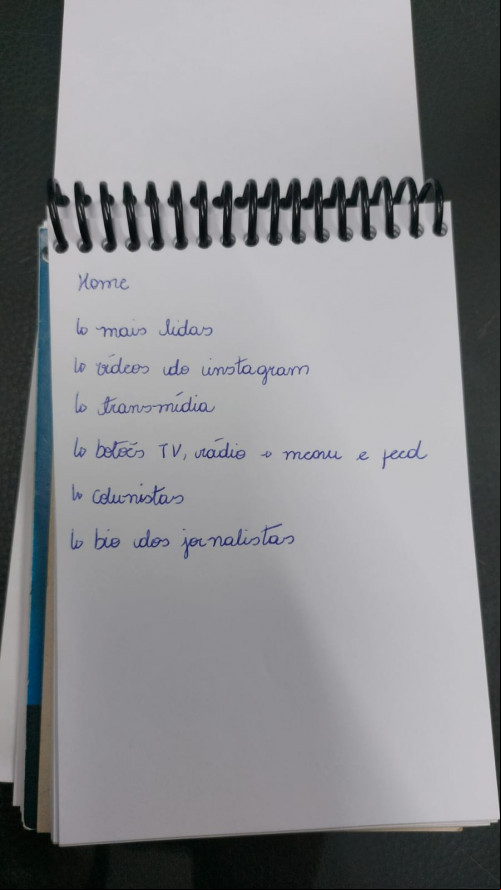 Home
↳ mais lidas
↳ vídeos do instagram
↳ transmídia
↳ botões TV, rádio → menu e feed
↳ colunistas
↳ bio dos jornalistas